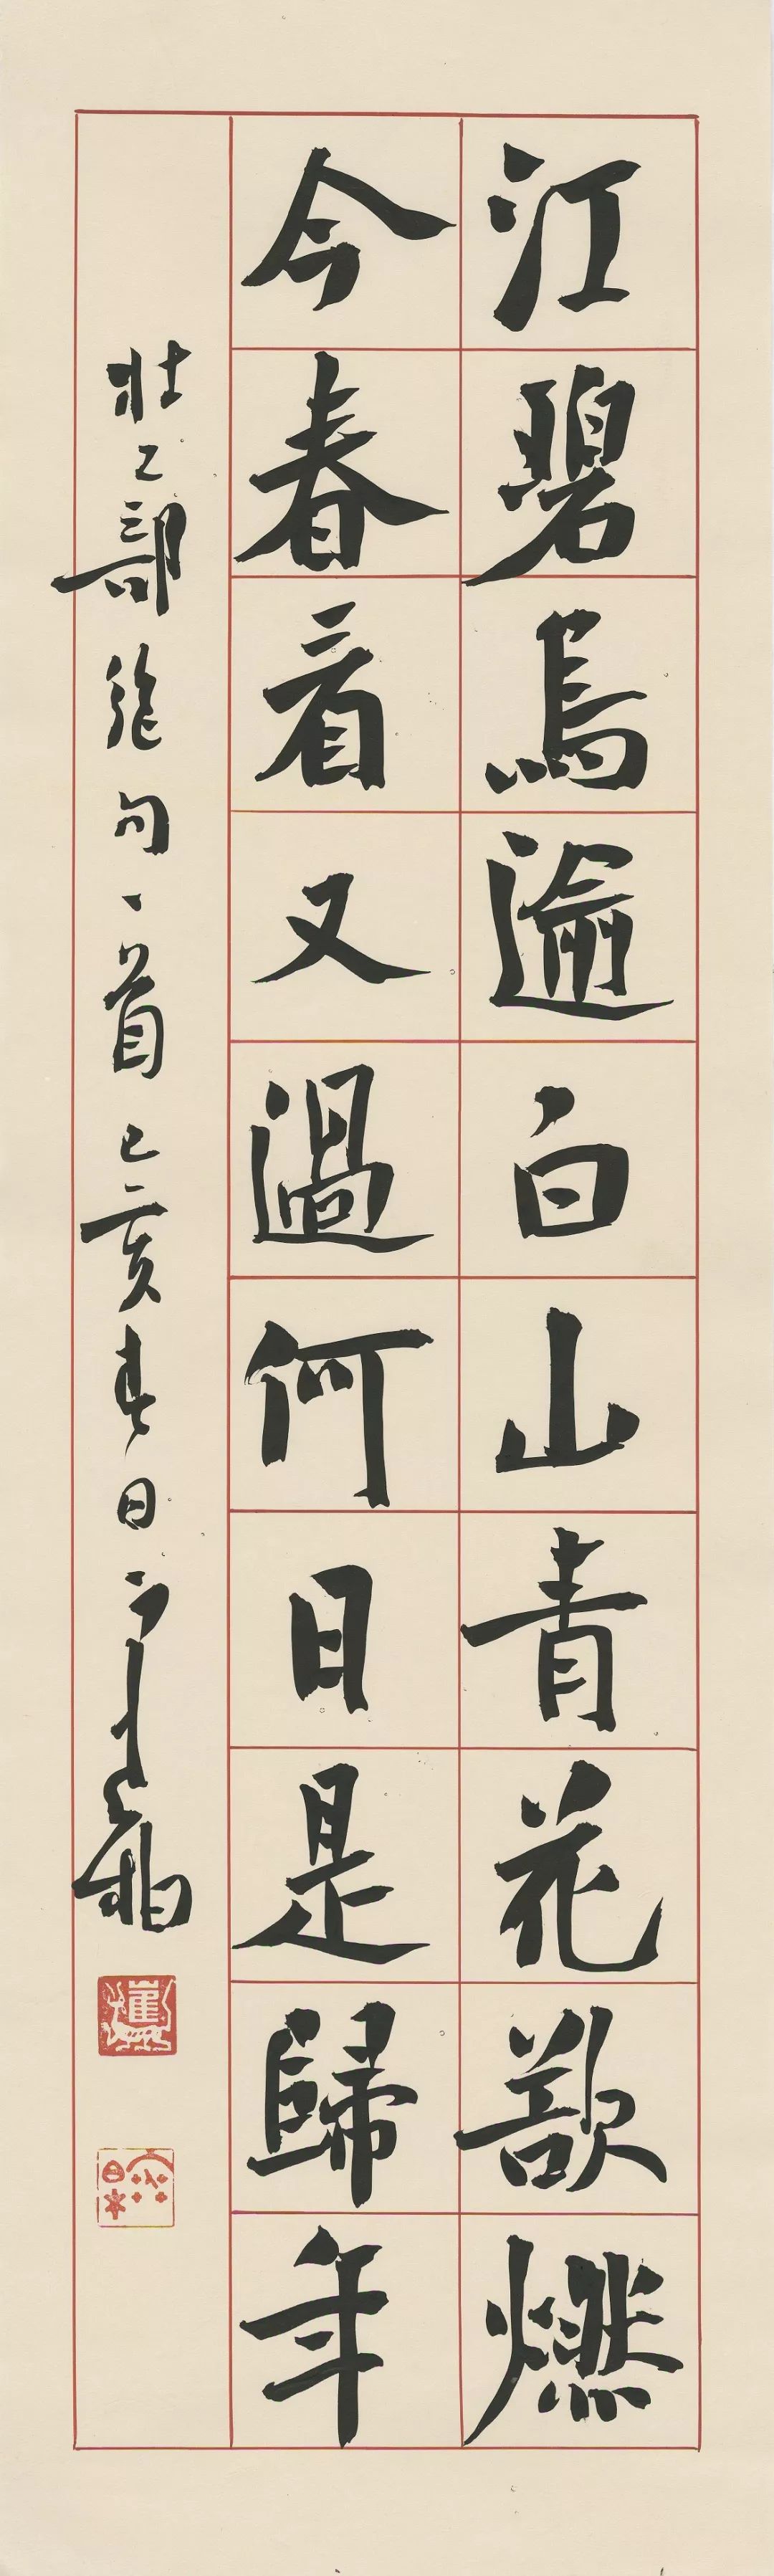 江碧鳥逾白山青花欲燃
今春看又過何日是歸年
杜工部絕句一首己亥春日